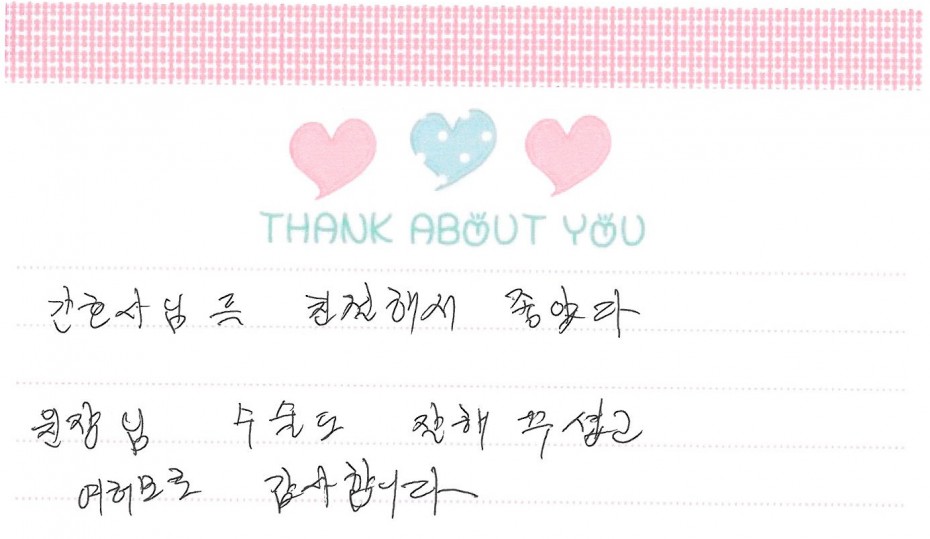 THANK ABOUT YOU
간호사님 친절해서 좋았다
원장님 수술도 잘해 주셨고
여러모로 감사합니다